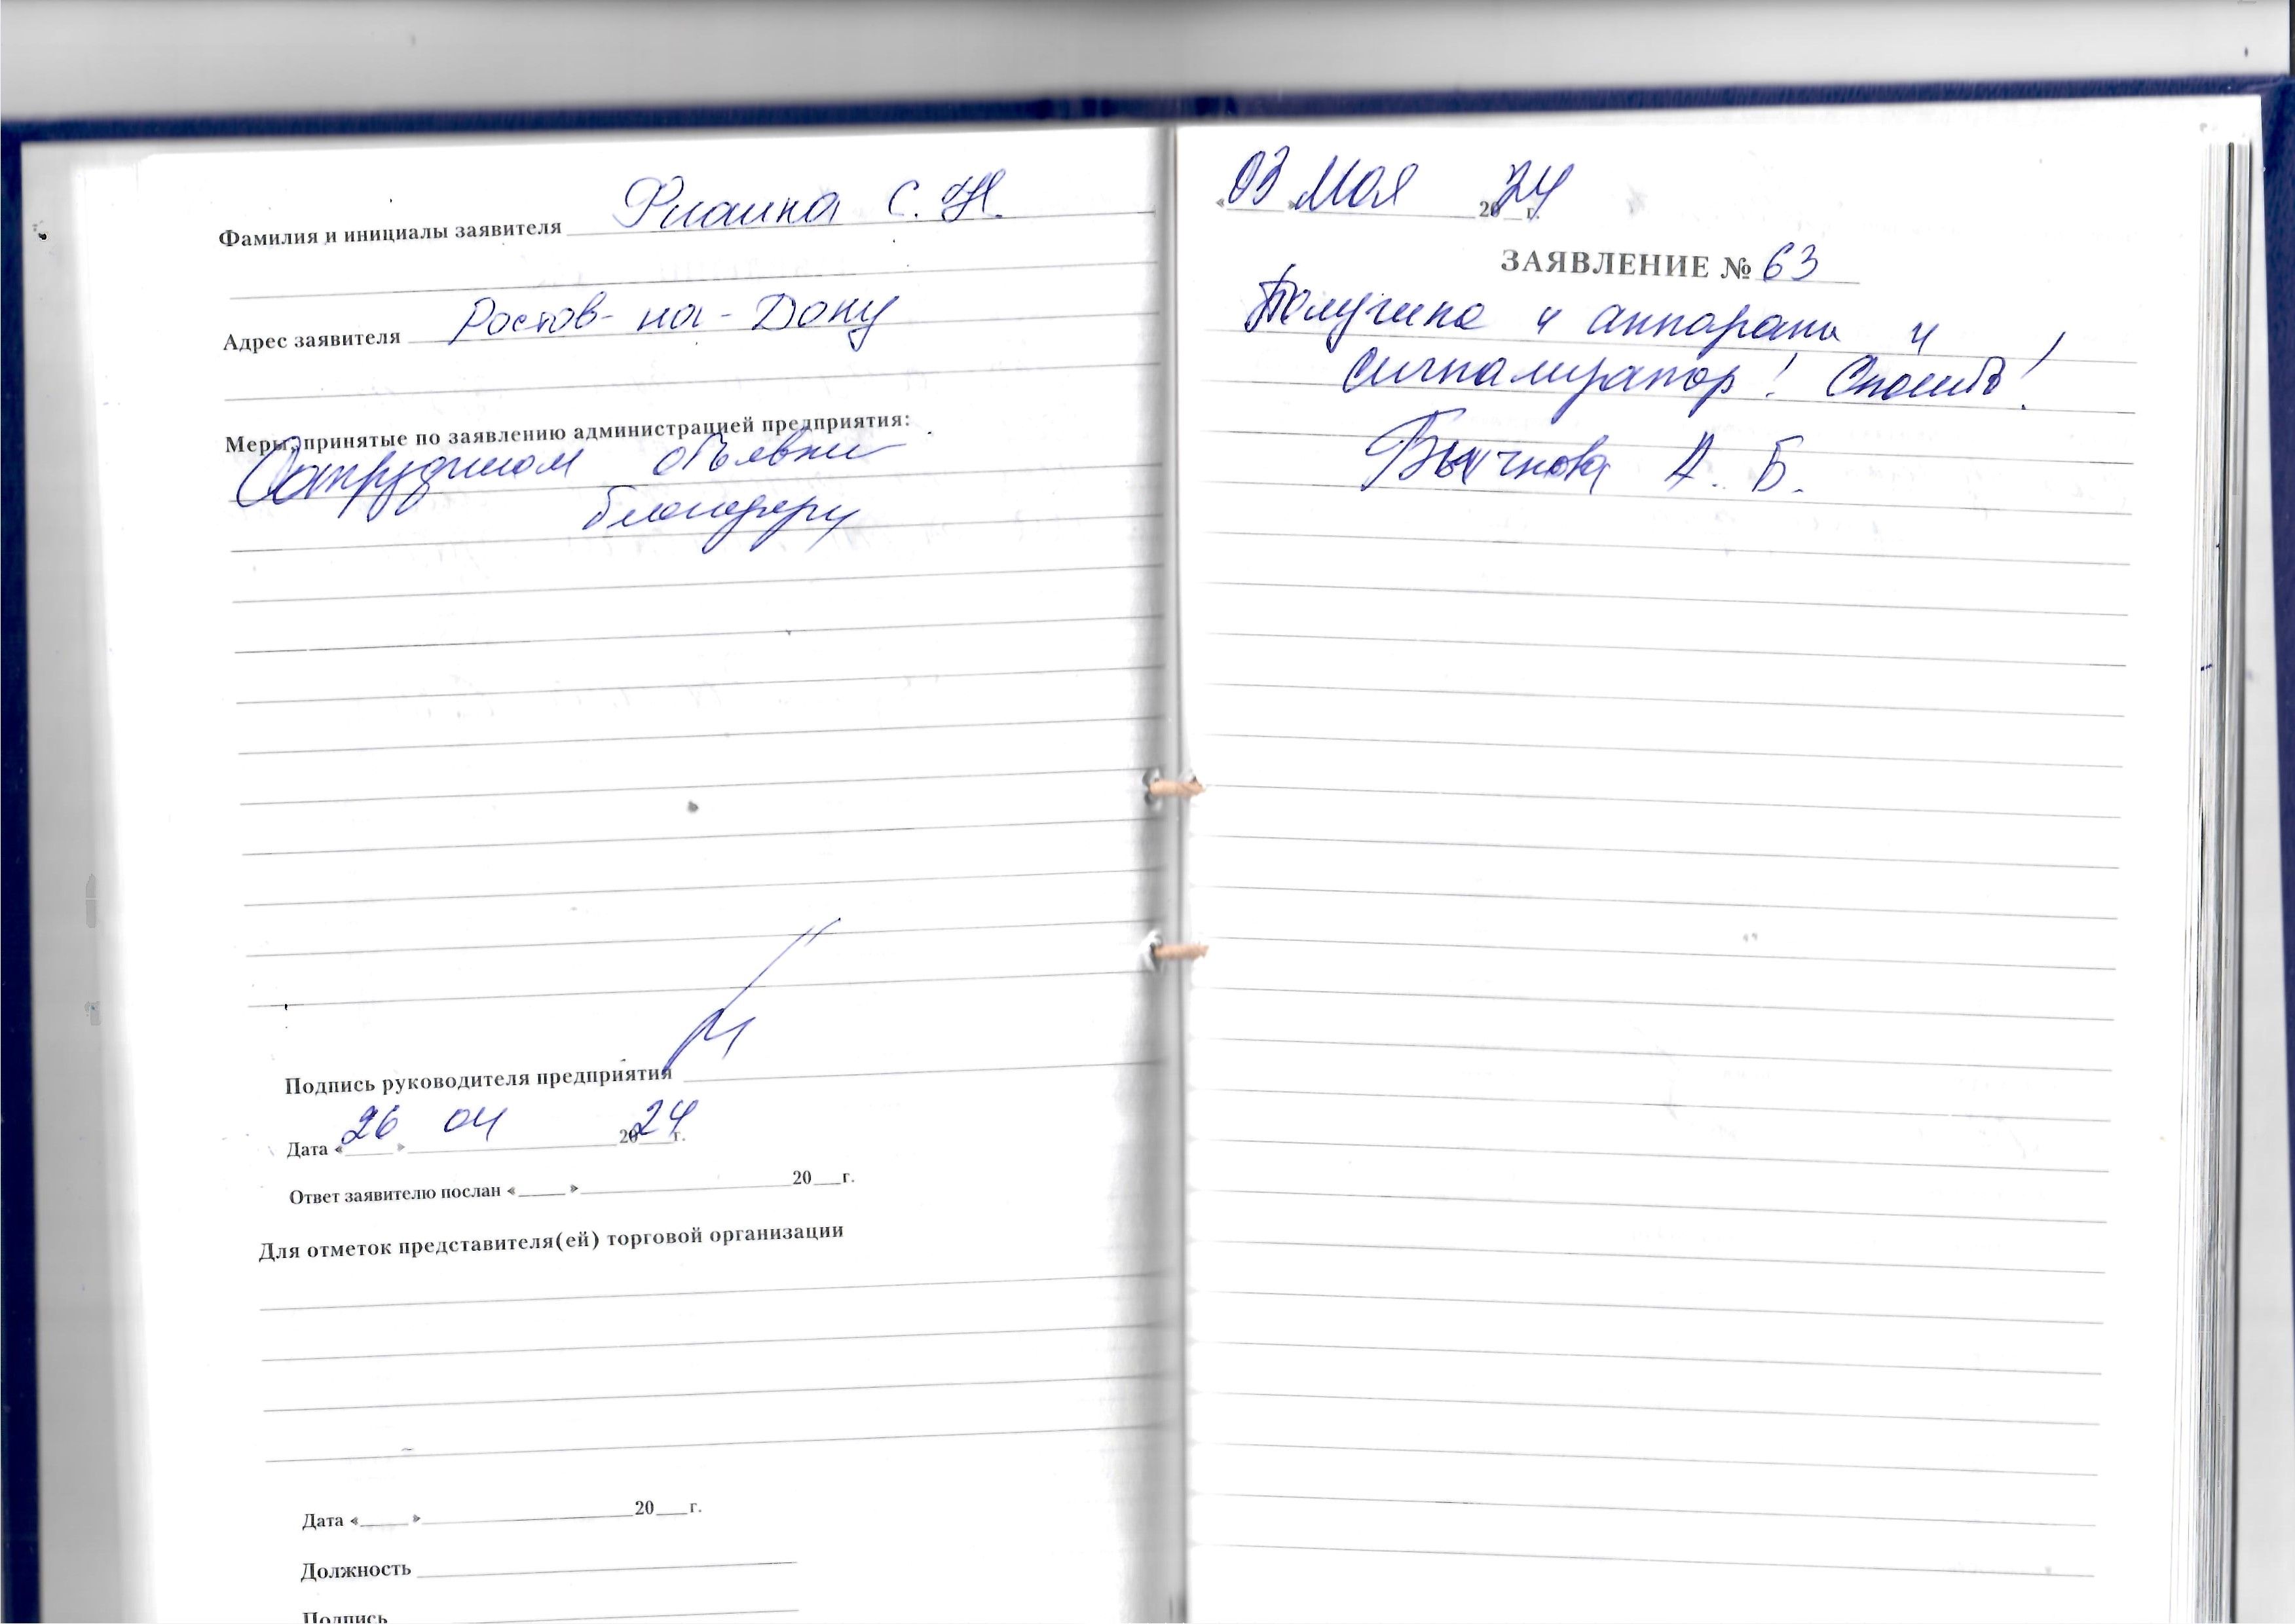 Фамилия и инициалы заявителя С. Н.
Адрес заявителя Ростов-на-Дону
Меры, принятые по заявлению администрацией предприятия:
Сотрудникам объявлена
Подпись руководителя предприятия
Дата «26» 04 2024 г.
Ответ заявителю послан «____» ____ 20__г.
Для отметок представителя(ей) торговой организации
Дата «____» ____ 20__г.
Должность
Подпись
«03» Мая 2024 г.
ЗАЯВЛЕНИЕ № 63
Получила и аппараты и
сигнализатор! Спасибо!
А. Б.